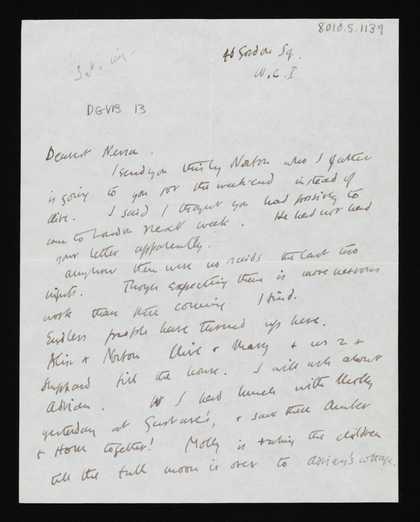 8010.5.1139
46 Gordon Sq.
W.C.I
DGVB 13
Dearest Nessa.
I send you this by Norton who I gather
is going to you for the week-end instead of
Clive. I said I thought you had possibly to
come to London next week. He had not had
your letter apparently.
Anyhow there were no raids the last two
nights. Though expecting them is more nervous
work than their coming I find.
Endless people have turned up here.
Alix & Norton Clive & Mary & us 2 &
Sheppard fill the house. I will ask about
Adrian. I had lunch with Molly
yesterday at Gustave's, & saw there
& together! Molly is taking the children
till the full moon is over to Adrian's cottage.